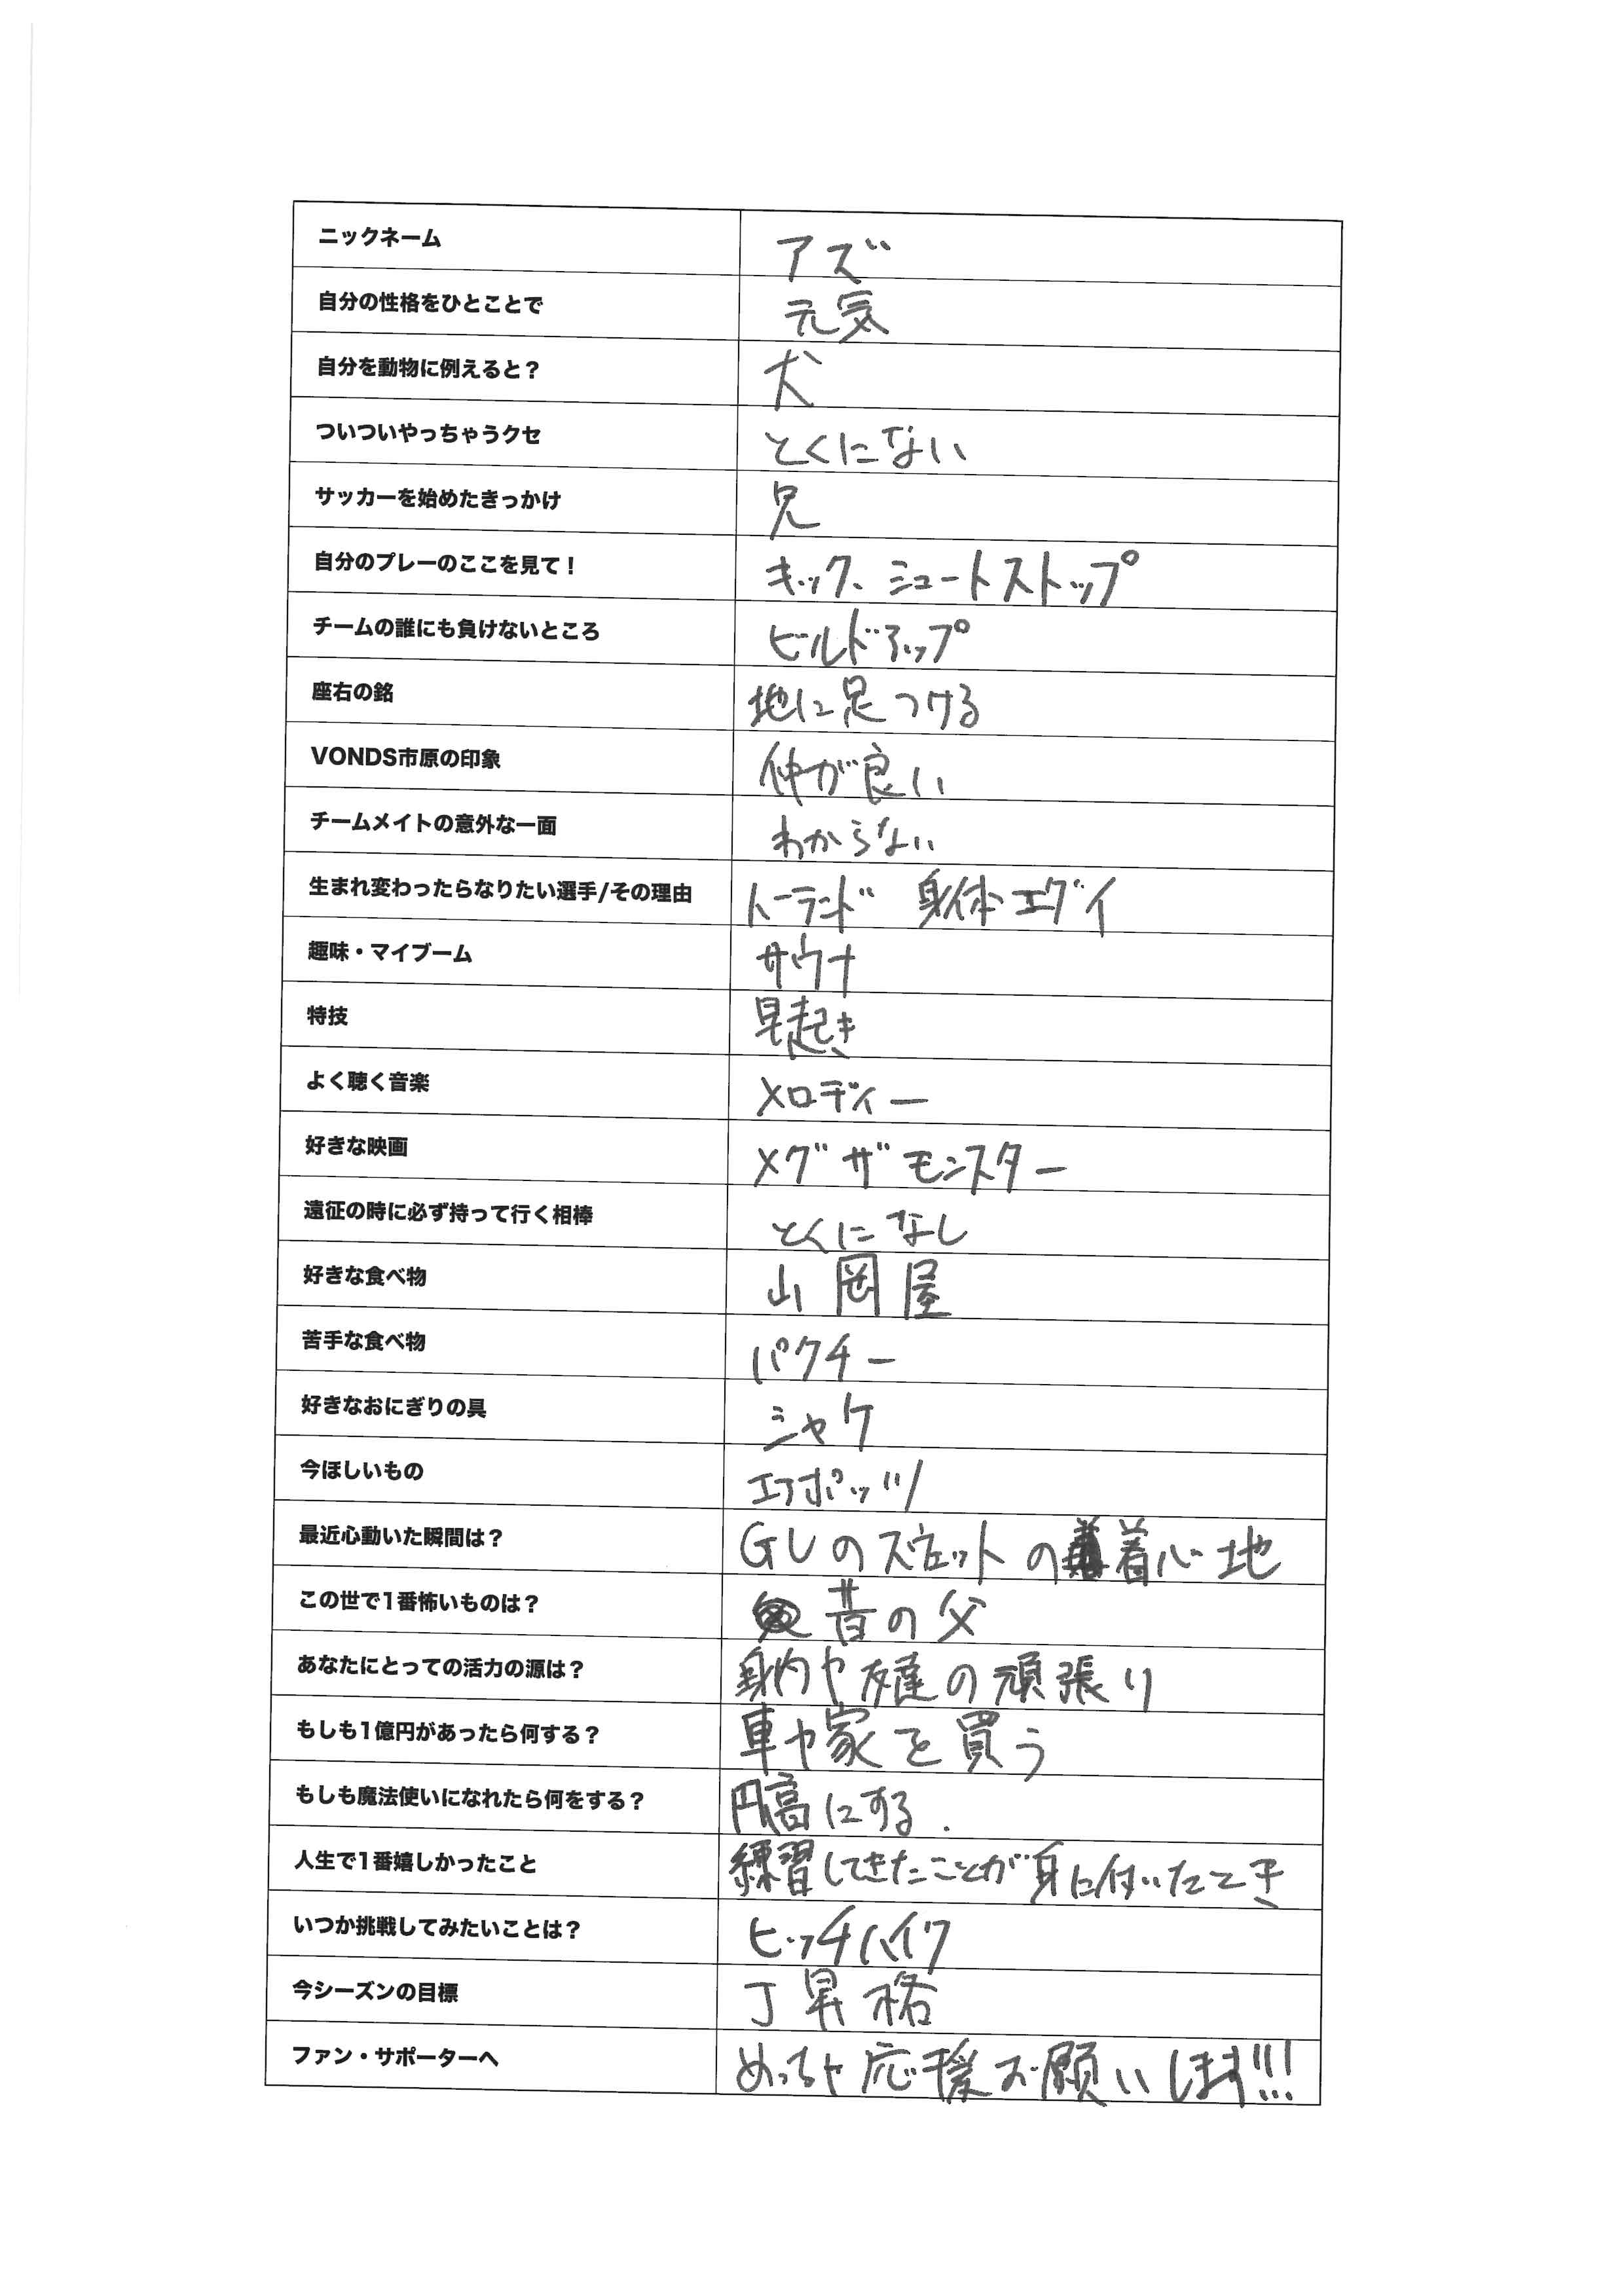 ニックネーム アズ
自分の性格をひとことで 元気
自分を動物に例えると？ 犬
ついついやっちゃうクセ とくにない
サッカーを始めたきっかけ 兄
自分のプレーのここを見て！ キック、シュートストップ
チームの誰にも負けないところ ビルドアップ
座右の銘 地に足つける
VONDS市原の印象 仲が良い
チームメイトの意外な一面 わからない
生まれ変わったらなりたい選手/その理由 トーランド 身体エグイ
趣味・マイブーム サウナ
特技 早起き
よく聴く音楽 メロディー
好きな映画 メグザモンスター
遠征の時に必ず持って行く相棒 とくになし
好きな食べ物 山岡屋
苦手な食べ物 パクチー
好きなおにぎりの具 シャケ
今ほしいもの エアポッツ
最近心動いた瞬間は？ GUのスウェットの着心地
この世で1番怖いものは？ 昔の父
あなたにとっての活力の源は？ 身内や友達の頑張り
もしも1億円があったら何する？ 車や家を買う
もしも魔法使いになれたら何をする？ 円高にする.
人生で1番嬉しかったこと 練習してきたことが身に付いたとき
いつか挑戦してみたいことは？ ヒッチハイク
今シーズンの目標 J昇格
ファン・サポーターへ めっちゃ応援お願いします!!!